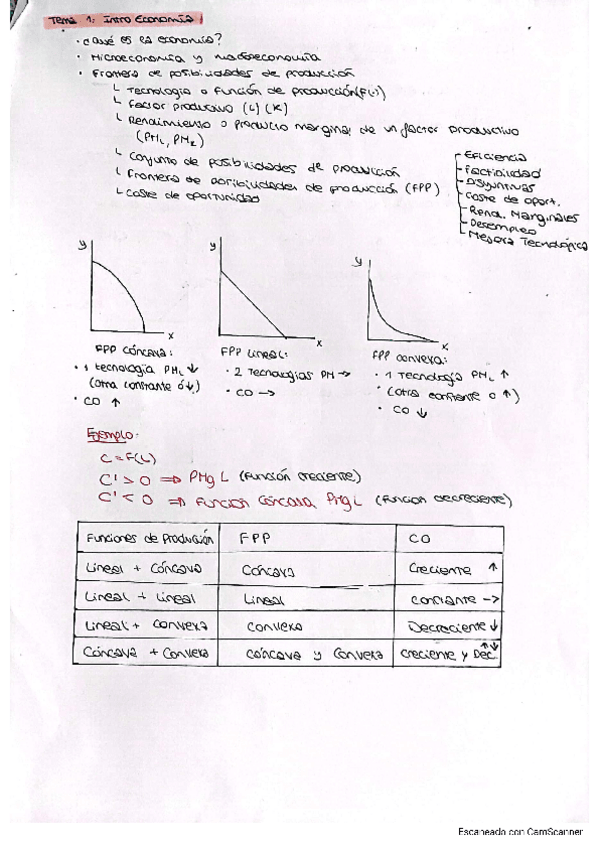 Tema 1: Intro Economía
· ¿Qué es la economía?
· Microeconomía y macroeconomía
· Frontera de posibilidades de producción
└ Tecnología o función de producción (F(·))
└ Factor productivo (L) (K)
└ Rendimiento o producto marginal de un factor productivo
(PML, PMK)
└ Conjunto de posibilidades de producción
└ Frontera de posibilidades de producción (FPP)
└ Coste de oportunidad
- Eficiencia
- Factibilidad
- Disyuntivas
- Coste de oport.
- Rend. Marginales
- Desempleo
- Mejora Tecnológica
y
x
FPP cóncava:
· 1 tecnología PML ↓
(otra constante ó ↓)
· CO ↑
y
x
FPP lineal:
· 2 Tecnologías PM →
· CO →
y
x
FPP convexa:
· 1 Tecnología PML ↑
(otra constante o ↑)
· CO ↓
Ejemplo:
C = F(L)
C' > 0 ⇒ PMg L (Función creciente)
C' < 0 ⇒ Función Cóncava PMg L (Función decreciente)
Funciones de Producción FPP CO
Lineal + Cóncava Cóncava Creciente ↑
Lineal + Lineal Lineal constante →
Lineal + Convexa convexa Decreciente ↓
Cóncava + Convexa cóncava y Convexa creciente y Dec ↑↓
Escaneado con CamScanner